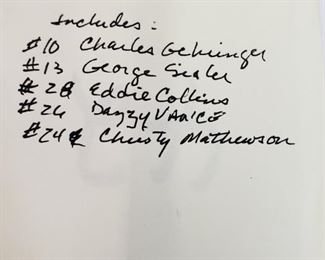 Includes:
#10 Charles Gehringer
#13 George Sisler
#28 Eddie Collins
#26 Dazzy Vance
#24 Christy Mathewson